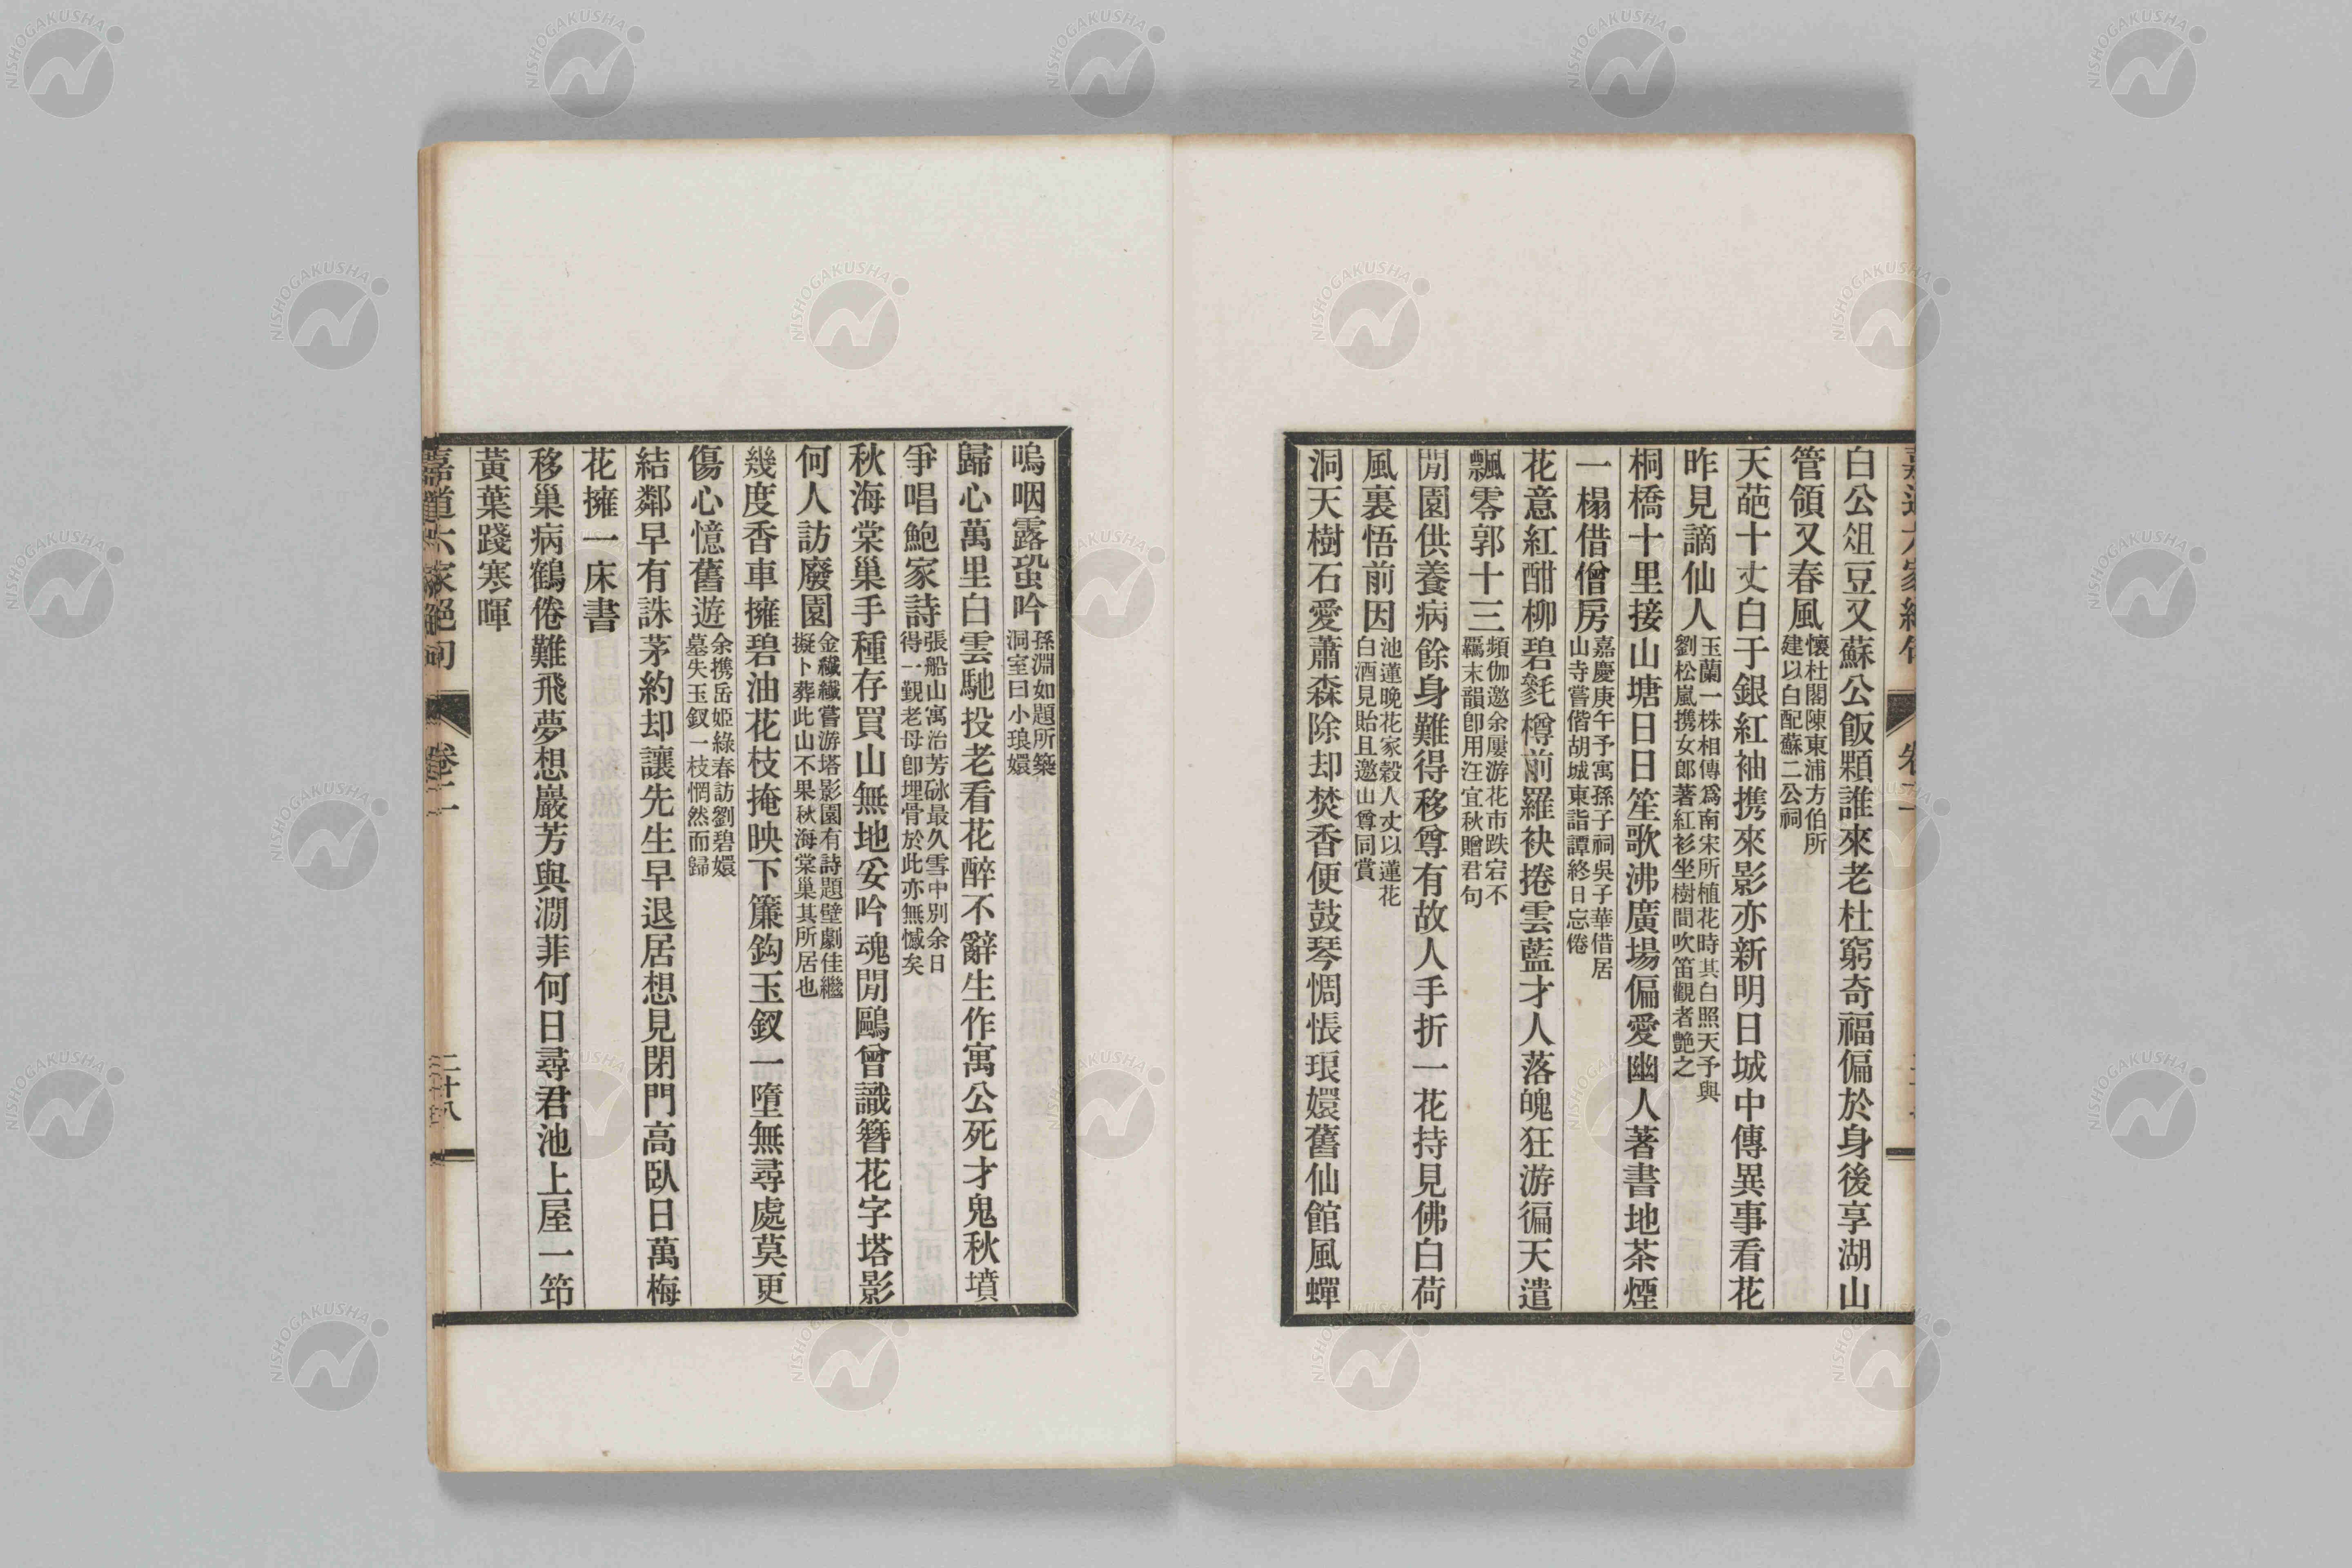 白公俎豆又蘇公飯顆誰來老杜窮奇福偏於身後享湖山
管領又春風懷杜閣陳東浦方伯所
建以白配蘇二公祠
天葩十丈白于銀紅袖携來影亦新明日城中傳異事看花
昨見謫仙人玉蘭一株相傳爲南宋所植花時其白照天予與
劉松嵐携女郎著紅衫坐樹間吹笛觀者艷之
桐橋十里接山塘日日笙歌沸廣場偏愛幽人著書地茶煙
一榻借僧房嘉慶庚午予寓孫子祠吳子華借居
山寺嘗偕胡城東詣譚終日忘倦
花意紅酣柳碧毿樽前羅袂捲雲藍才人落魄狂游徧天遣
飄零郭十三頻伽邀余屢游花市跌宕不
羈末韻卽用汪宜秋贈君句
閒園供養病餘身難得移尊有故人手折一花持見佛白荷
風裏悟前因池蓮晚花家穀人丈以蓮花
白酒見貽且邀山尊同賞
洞天樹石愛蕭森除却焚香便鼓琴惆悵琅嬛舊仙館風蟬
嗚咽露蛩吟孫淵如題所築
洞室曰小琅嬛
歸心萬里白雲馳投老看花醉不辭生作寓公死才鬼秋墳
爭唱鮑家詩張船山寓治芳砅最久雪中別余日
得一覲老母卽埋骨於此亦無憾矣
秋海棠巢手種存買山無地妥吟魂閒鷗曾識簪花字塔影
何人訪廢園金纖纖嘗游塔影園有詩題壁劇佳繼
擬卜葬此山不果秋海棠巢其所居也
幾度香車擁碧油花枝掩映下簾鈎玉釵一墮無尋處莫更
傷心憶舊遊余携岳姬綠春訪劉碧嬛
墓失玉釵一枝惘然而歸
結鄰早有誅茅約却讓先生早退居想見閉門高臥日萬梅
花擁一床書
移巢病鶴倦難飛夢想巖芳與澗菲何日尋君池上屋一筇
黃葉踐寒暉
嘉道六家絕句
卷二
二十八